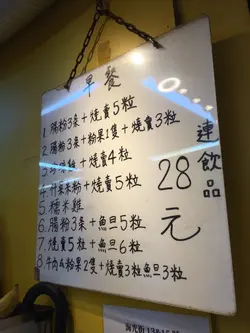 早餐
1. 腸粉3条+燒賣5粒
2. 腸粉3条+粉果1隻+燒賣3粒
燒賣4粒
+燒賣5粒
5. 糯米雞
6. 腸粉3条+魚旦5粒
7. 燒賣5粒+魚旦6粒
8. 牛肉 粉果2隻+燒賣3粒魚旦3粒
連飲品
28元